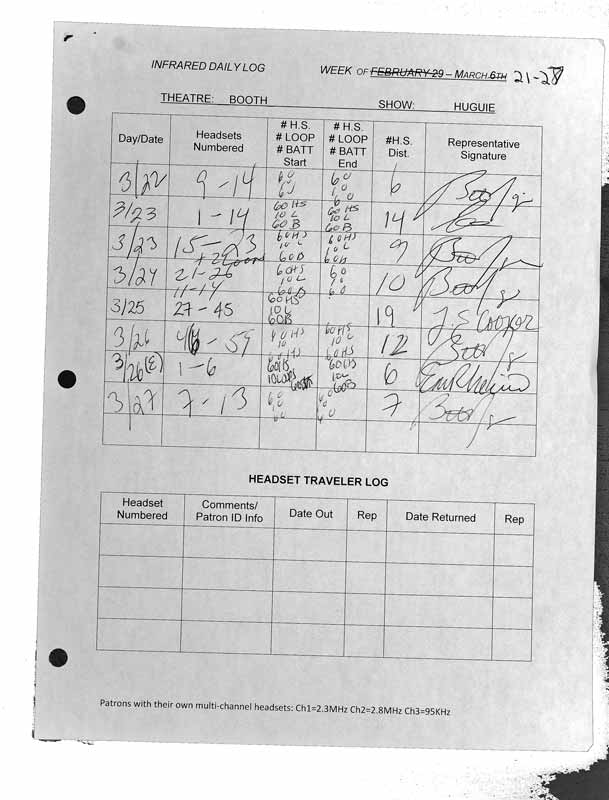 INFRARED DAILY LOG WEEK OF FEBRUARY 29 – MARCH 6TH 21-28
THEATRE: BOOTH SHOW: HUGUIE
Day/Date Headsets Numbered # H.S. # LOOP # BATT Start # H.S. # LOOP # BATT End #H.S. Dist. Representative Signature
3/22 9-14 60 10 60 60 10 60 6
3/23 1-14 60 HS 10 L 60 B 60 HS 10 L 60 B 14
3/23 15-23 60 HS 10 L 60 B 60 HS 10 L 60 B 9
+ 2 Loops
3/24 21-26 60HS 10 L 60 B 60 10 60 10
11-14
3/25 27-45 60 HS 10 L 60B 19 J S Cooker
3/26 46-59 60 HS 10 60 HS 10 L 12
3/26(E) 1-6 60HS 10 Loops 60 HS 10 L 60B 6
3/27 7-13 60 10 60 60 10 60 7
HEADSET TRAVELER LOG
Headset Numbered Comments/ Patron ID Info Date Out Rep Date Returned Rep
Patrons with their own multi-channel headsets: Ch1=2.3MHz Ch2=2.8MHz Ch3=95KHz